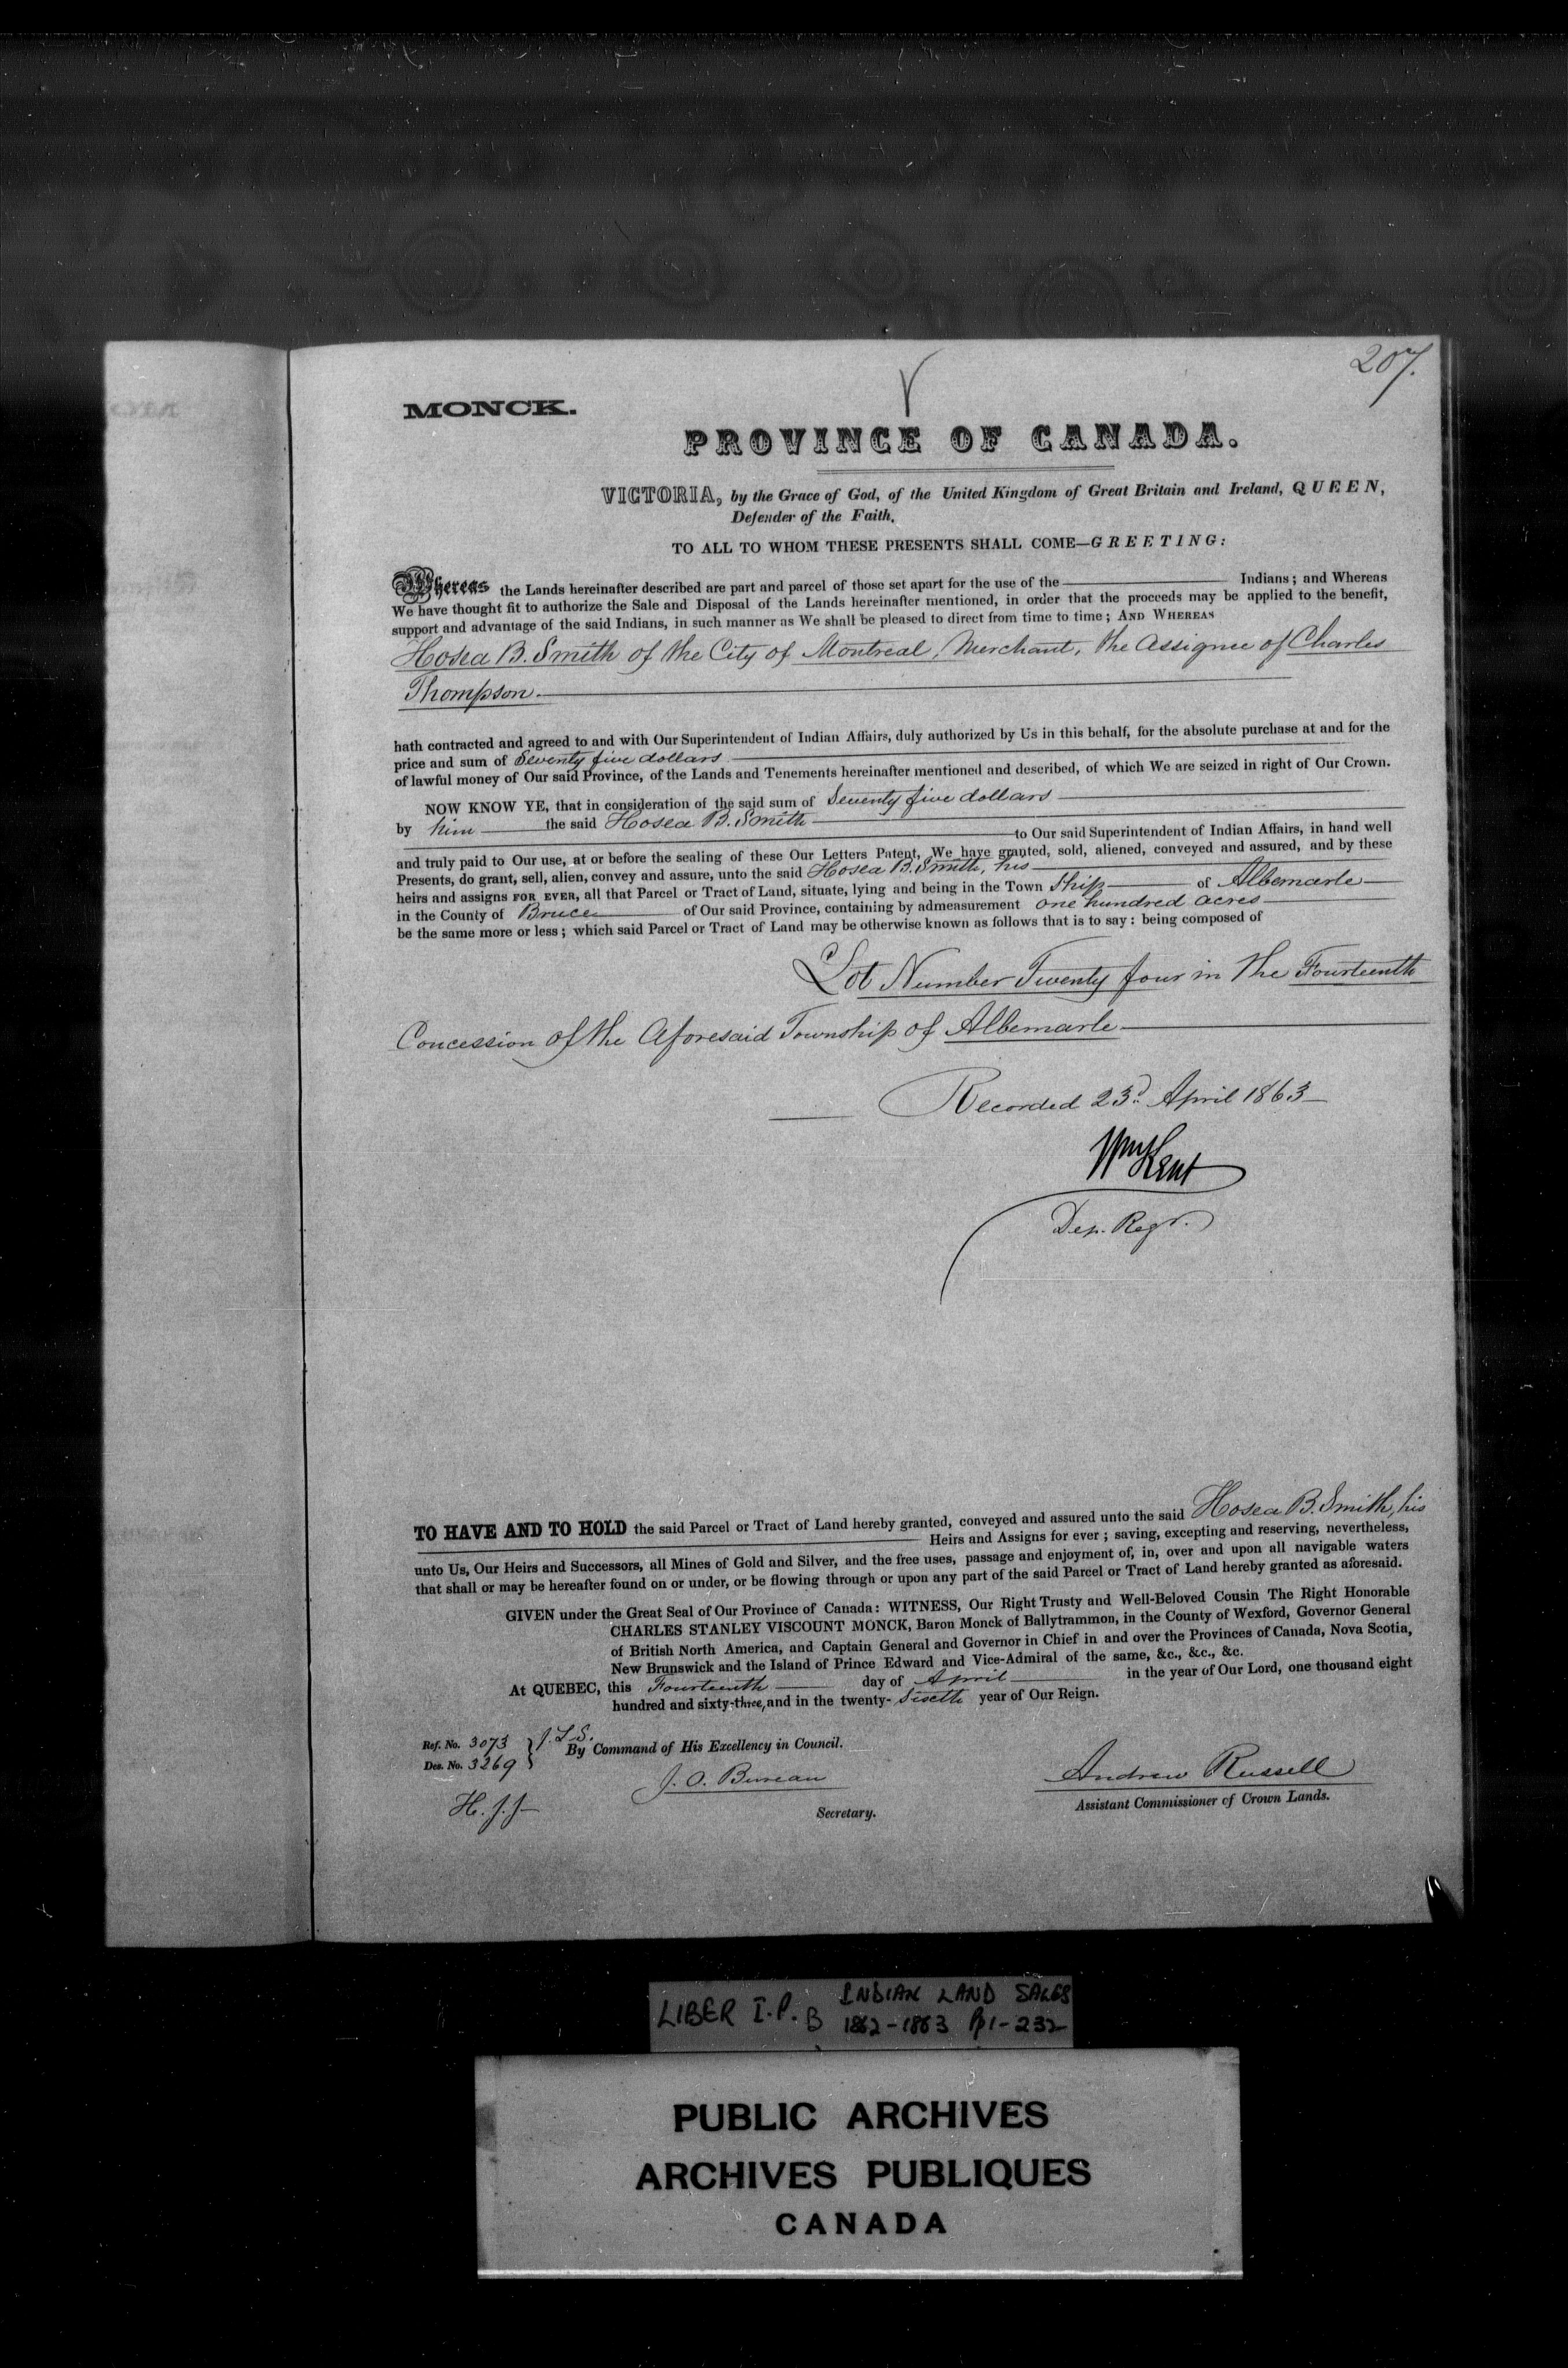 207.
MONCK.
PROVINCE OF CANADA.
VICTORIA, by the Grace of God, of the United Kingdom of Great Britain and Ireland, QUEEN,
Defender of the Faith.
TO ALL TO WHOM THESE PRESENTS SHALL COME—GREETING:
Whereas the Lands hereinafter described are part and parcel of those set apart for the use of the Indians; and Whereas
We have thought fit to authorize the Sale and Disposal of the Lands hereinafter mentioned, in order that the proceeds may be applied to the benefit,
support and advantage of the said Indians, in such manner as We shall be pleased to direct from time to time; AND WHEREAS
Hosea B. Smith of the City of Montreal, Merchant, the Assignee of Charles
Thompson.
hath contracted and agreed to and with Our Superintendent of Indian Affairs, duly authorized by Us in this behalf, for the absolute purchase at and for the
price and sum of Seventy five dollars
of lawful money of Our said Province, of the Lands and Tenements hereinafter mentioned and described, of which We are seized in right of Our Crown.
NOW KNOW YE, that in consideration of the said sum of Seventy five dollars
by him the said Hosea B. Smith
to Our said Superintendent of Indian Affairs, in hand well
and truly paid to Our use, at or before the sealing of these Our Letters Patent, We have granted, sold, aliened, conveyed and assured, and by these
Presents, do grant, sell, alien, convey and assure, unto the said Hosea B. Smith, his
heirs and assigns FOR EVER, all that Parcel or Tract of Land, situate, lying and being in the Town Ship of Albemarle
in the County of Bruce of Our said Province, containing by admeasurement one hundred acres
be the same more or less; which said Parcel or Tract of Land may be otherwise known as follows that is to say: being composed of
Lot Number Twenty four in the Fourteenth
Concession of the Aforesaid Township of Albemarle
Recorded 23d. April 1863
Wm Kent
Dep. Regr.
TO HAVE AND TO HOLD the said Parcel or Tract of Land hereby granted, conveyed and assured unto the said Hosea B. Smith, his
Heirs and Assigns for ever; saving, excepting and reserving, nevertheless,
unto Us, Our Heirs and Successors, all Mines of Gold and Silver, and the free uses, passage and enjoyment of, in, over and upon all navigable waters
that shall or may be hereafter found on or under, or be flowing through or upon any part of the said Parcel or Tract of Land hereby granted as aforesaid.
GIVEN under the Great Seal of Our Province of Canada: WITNESS, Our Right Trusty and Well-Beloved Cousin The Right Honorable
CHARLES STANLEY VISCOUNT MONCK, Baron Monck of Ballytrammon, in the County of Wexford, Governor General
of British North America, and Captain General and Governor in Chief in and over the Provinces of Canada, Nova Scotia,
New Brunswick and the Island of Prince Edward and Vice-Admiral of the same, &c., &c., &c.
At QUEBEC, this Fourteenth day of April in the year of Our Lord, one thousand eight
hundred and sixty-three, and in the twenty-Sixth year of Our Reign.
Ref. No. 3073
Des. No. 3269
By Command of His Excellency in Council.
J. O. Bureau
Secretary.
Andrew Russell
Assistant Commissioner of Crown Lands.
H. J. J
LIBER I.P. B INDIAN LAND SALES
1862-1863 P 1-232
PUBLIC ARCHIVES
ARCHIVES PUBLIQUES
CANADA